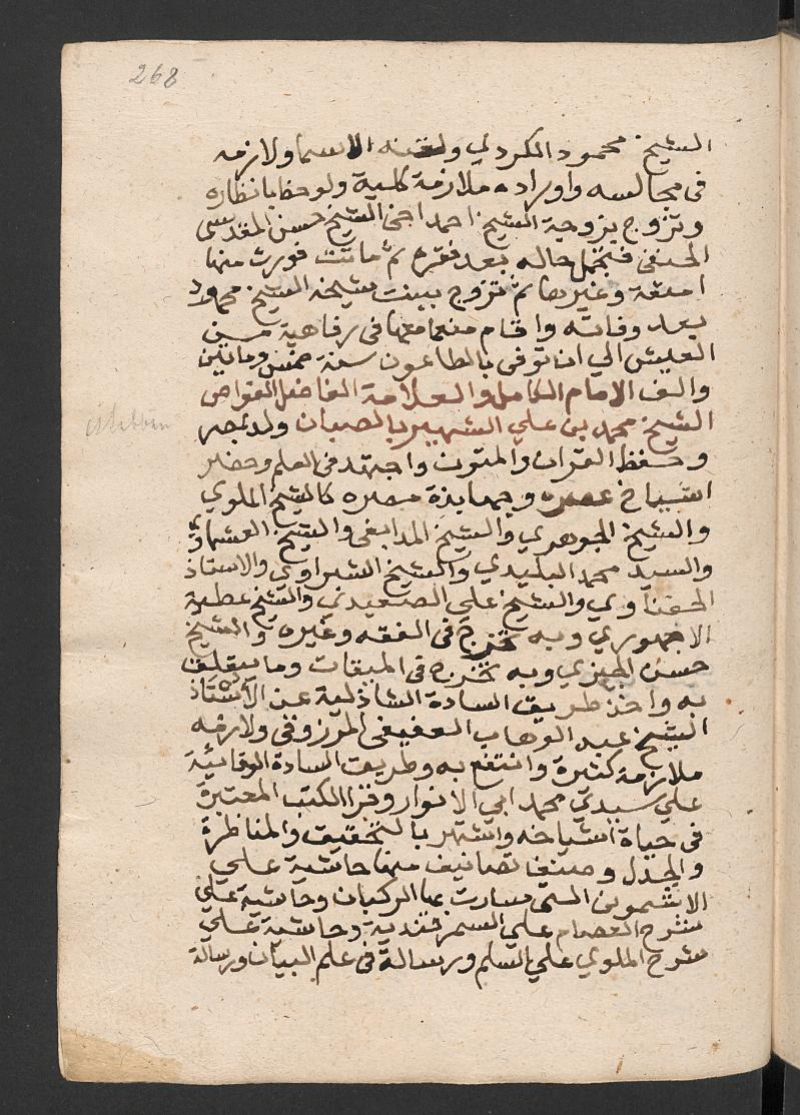 268
الشيخ محمود الكردي ولقنه الاسما ولازمه
فى مجالسه واوراده ملازمة كلية ولوحظ بانظاره
وتزوج بزوجة الشيخ احمد اخى الشيخ حسن المقدسى
الحنفى فتجمل حاله بعد فقره ثم ماتت فورث منها
امتعة وغيرها ثم تزوج ببنت شيخه الشيخ محمود
بعد وفاته واقام منعما معها فى رفاهية من
العيش الي ان توفى بالطاعون سنة خمس ومايتين
والف الامام الكامل والعلامة الفاضل الغواص
الشيخ محمد بن علي الشهير بالصبان ولد بمصر
وحفظ القران والمتون واجتهد فى العلم وحضر
اشياخ عصره وجهابذة مصره كالشيخ الملوي
والشيخ الجوهري والشيخ المدابغى والشيخ العشماوي
والسيد محمد البليدي والشيخ الشبراوي والاستاذ
الحفناوي والشيخ علي الصعيدي والشيخ عطية
الاجهوري وبه تخرج فى الفقه وغيره والشيخ
حسن الجبرتي وبه تخرج فى الميقات وما يتعلق
به واخذ طريق السادة الشاذلية عن الاستاذ
الشيخ عبد الوهاب العفيفى المرزوقى ولازمه
ملازمة كثيرة وانتفع به وطريق السادة الوفائية
علي سيدي محمد ابي الانوار وقرا الكتب المعتبرة
فى حياة اشياخه واشتهر بالتحقيق والمناظرة
والجدل وصنف تصانيف منها حاشية علي
الاشمونى التى سارت بها الركبان وحاشية علي
شرح العصام علي السمرقندية وحاشية علي
شرح الملوي علي السلم ورسالة فى علم البيان ورسالة